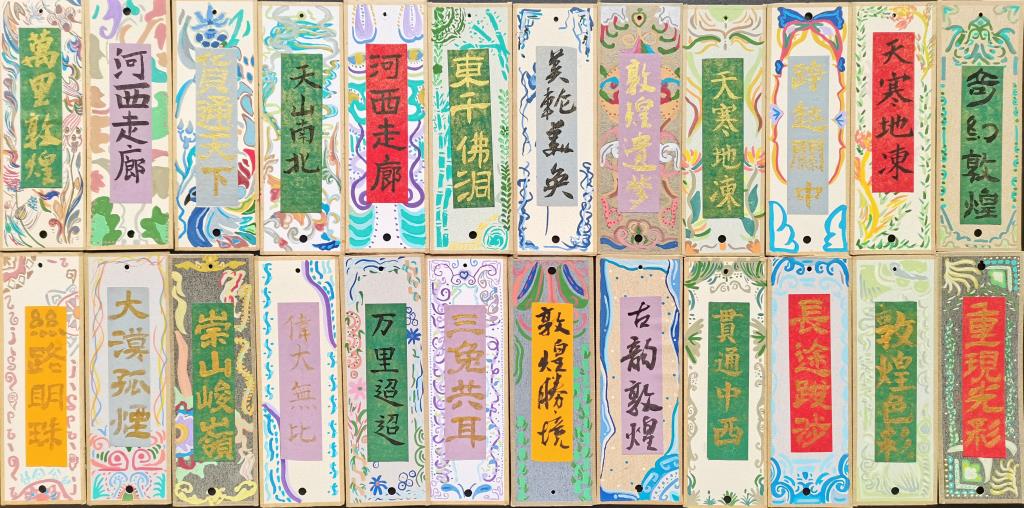 萬里敦煌
河西走廊
貨通天下
天山南北
河西走廊
東千佛洞
美輪美奐
敦煌遺夢
天寒地凍
跨越關中
天寒地凍
奇幻敦煌
絲路明珠
大漠孤煙
崇山峻嶺
偉大無比
万里迢迢
三兔共耳
敦煌勝境
古韵敦煌
貫通中西
長途跋涉
敦煌色彩
重現